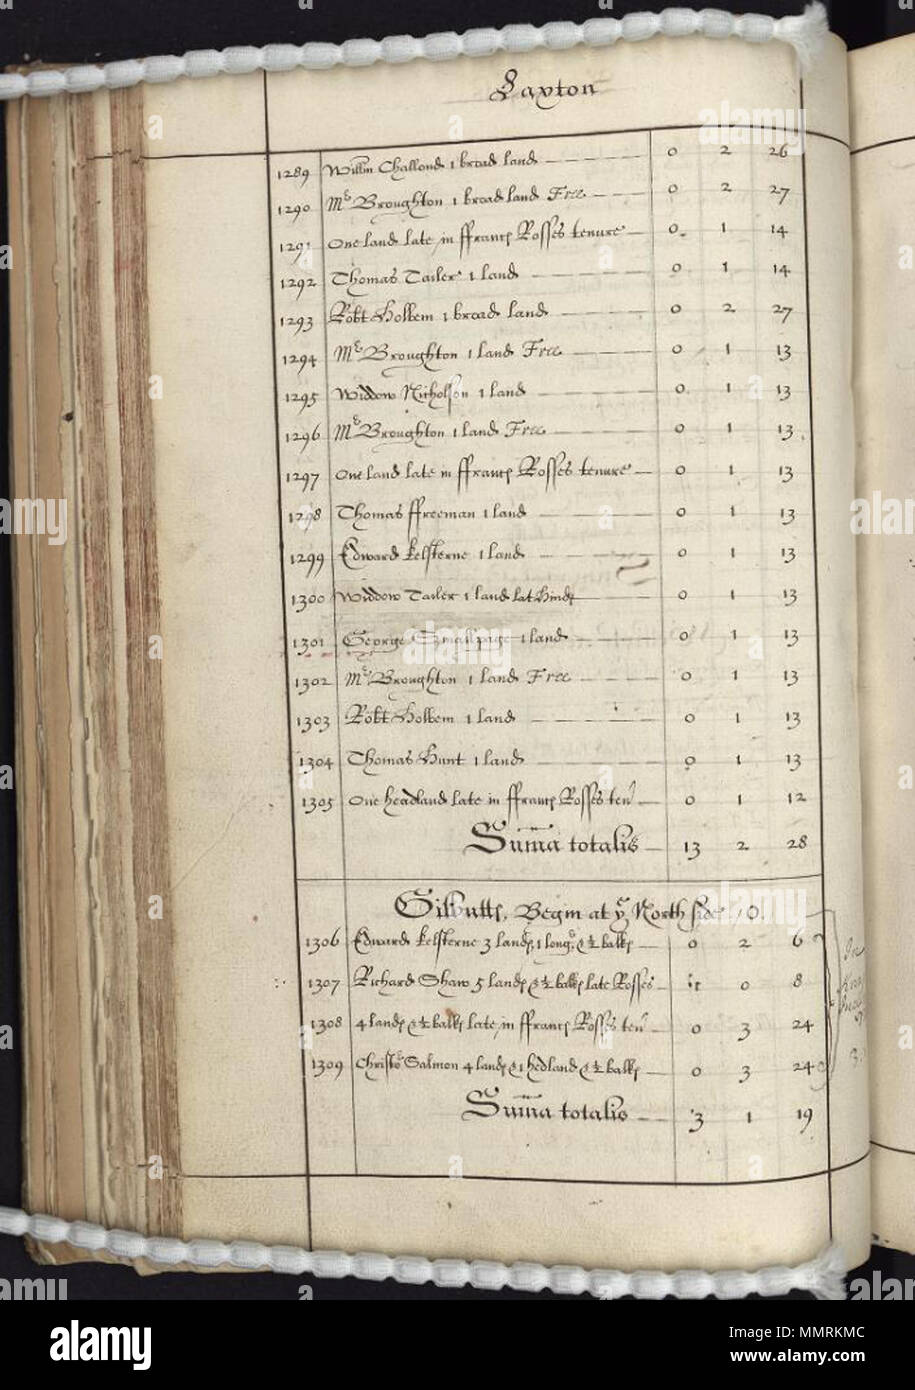 Laxton
1289 Willm Challond 1 broad land 0 2 26
1290 Mr Broughton 1 broad land Free 0 2 27
1291 One land late in ffranc Rosses tenure 0 1 14
1292 Thomas Tailer 1 land 0 1 14
1293 Robt Holbem 1 broad land 0 2 27
1294 Mr Broughton 1 land Free 0 1 13
1295 Widdow Nicholson 1 land 0 1 13
1296 Mr Broughton 1 land Free 0 1 13
1297 One land late in ffranc Rosses tenure 0 1 13
1298 Thomas ffreeman 1 land 0 1 13
1299 Edward Kelsterne 1 land 0 1 13
1300 Widdow Tailer 1 land lat Hinds 0 1 13
1301 George Smallpage 1 land 0 1 13
1302 Mr Broughton 1 land Free 0 1 13
1303 Robt Holbem 1 land 0 1 13
1304 Thomas Hunt 1 land 0 1 13
1305 One headland late in ffranc Rosses ten 0 1 12
Summa totalis 13 2 28
Begin at ye North side
1306 Edward Kelsterne 3 lands, 1 long, & ½ balk 0 2 6
1307 Richard Shaw 5 lands & ½ balk late Rosses 0 8
1308 4 lands & ½ balk late in ffranc Rosses ten 0 3 24
1309 Christo Salmon 4 lands & 1 hedland & ½ balk 0 3 24
Summa totalis 3 1 19
alamy
Image ID: MMRKMC
www.alamy.com